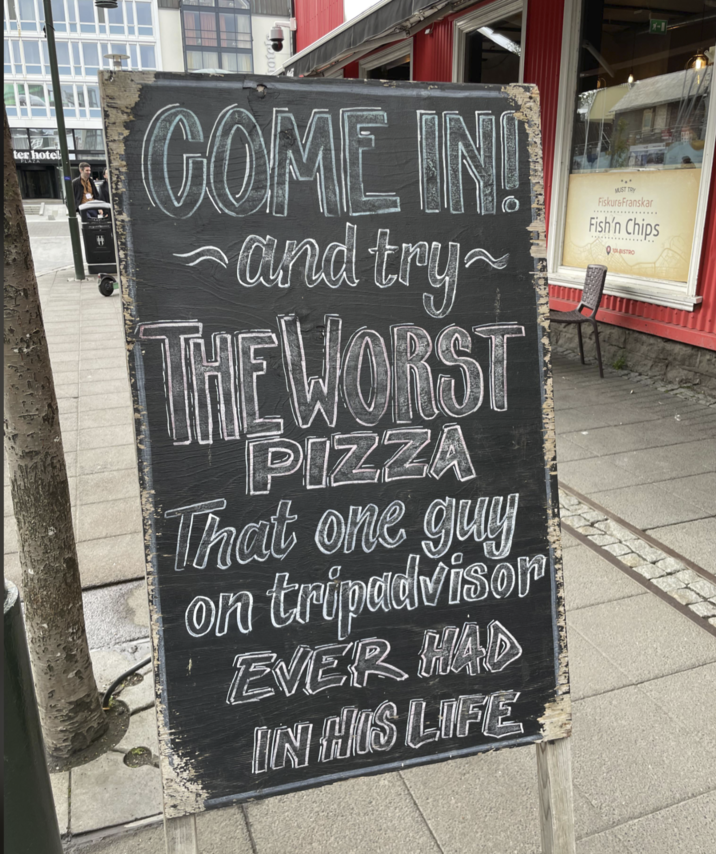 COME IN!
~and try~
THE WORST
PIZZA
That one guy
on tripadvisor
EVER HAD
IN HIS LIFE
ter hotel
PLAZA
MUST TRY
Fiskur&Franskar
Fish'n Chips